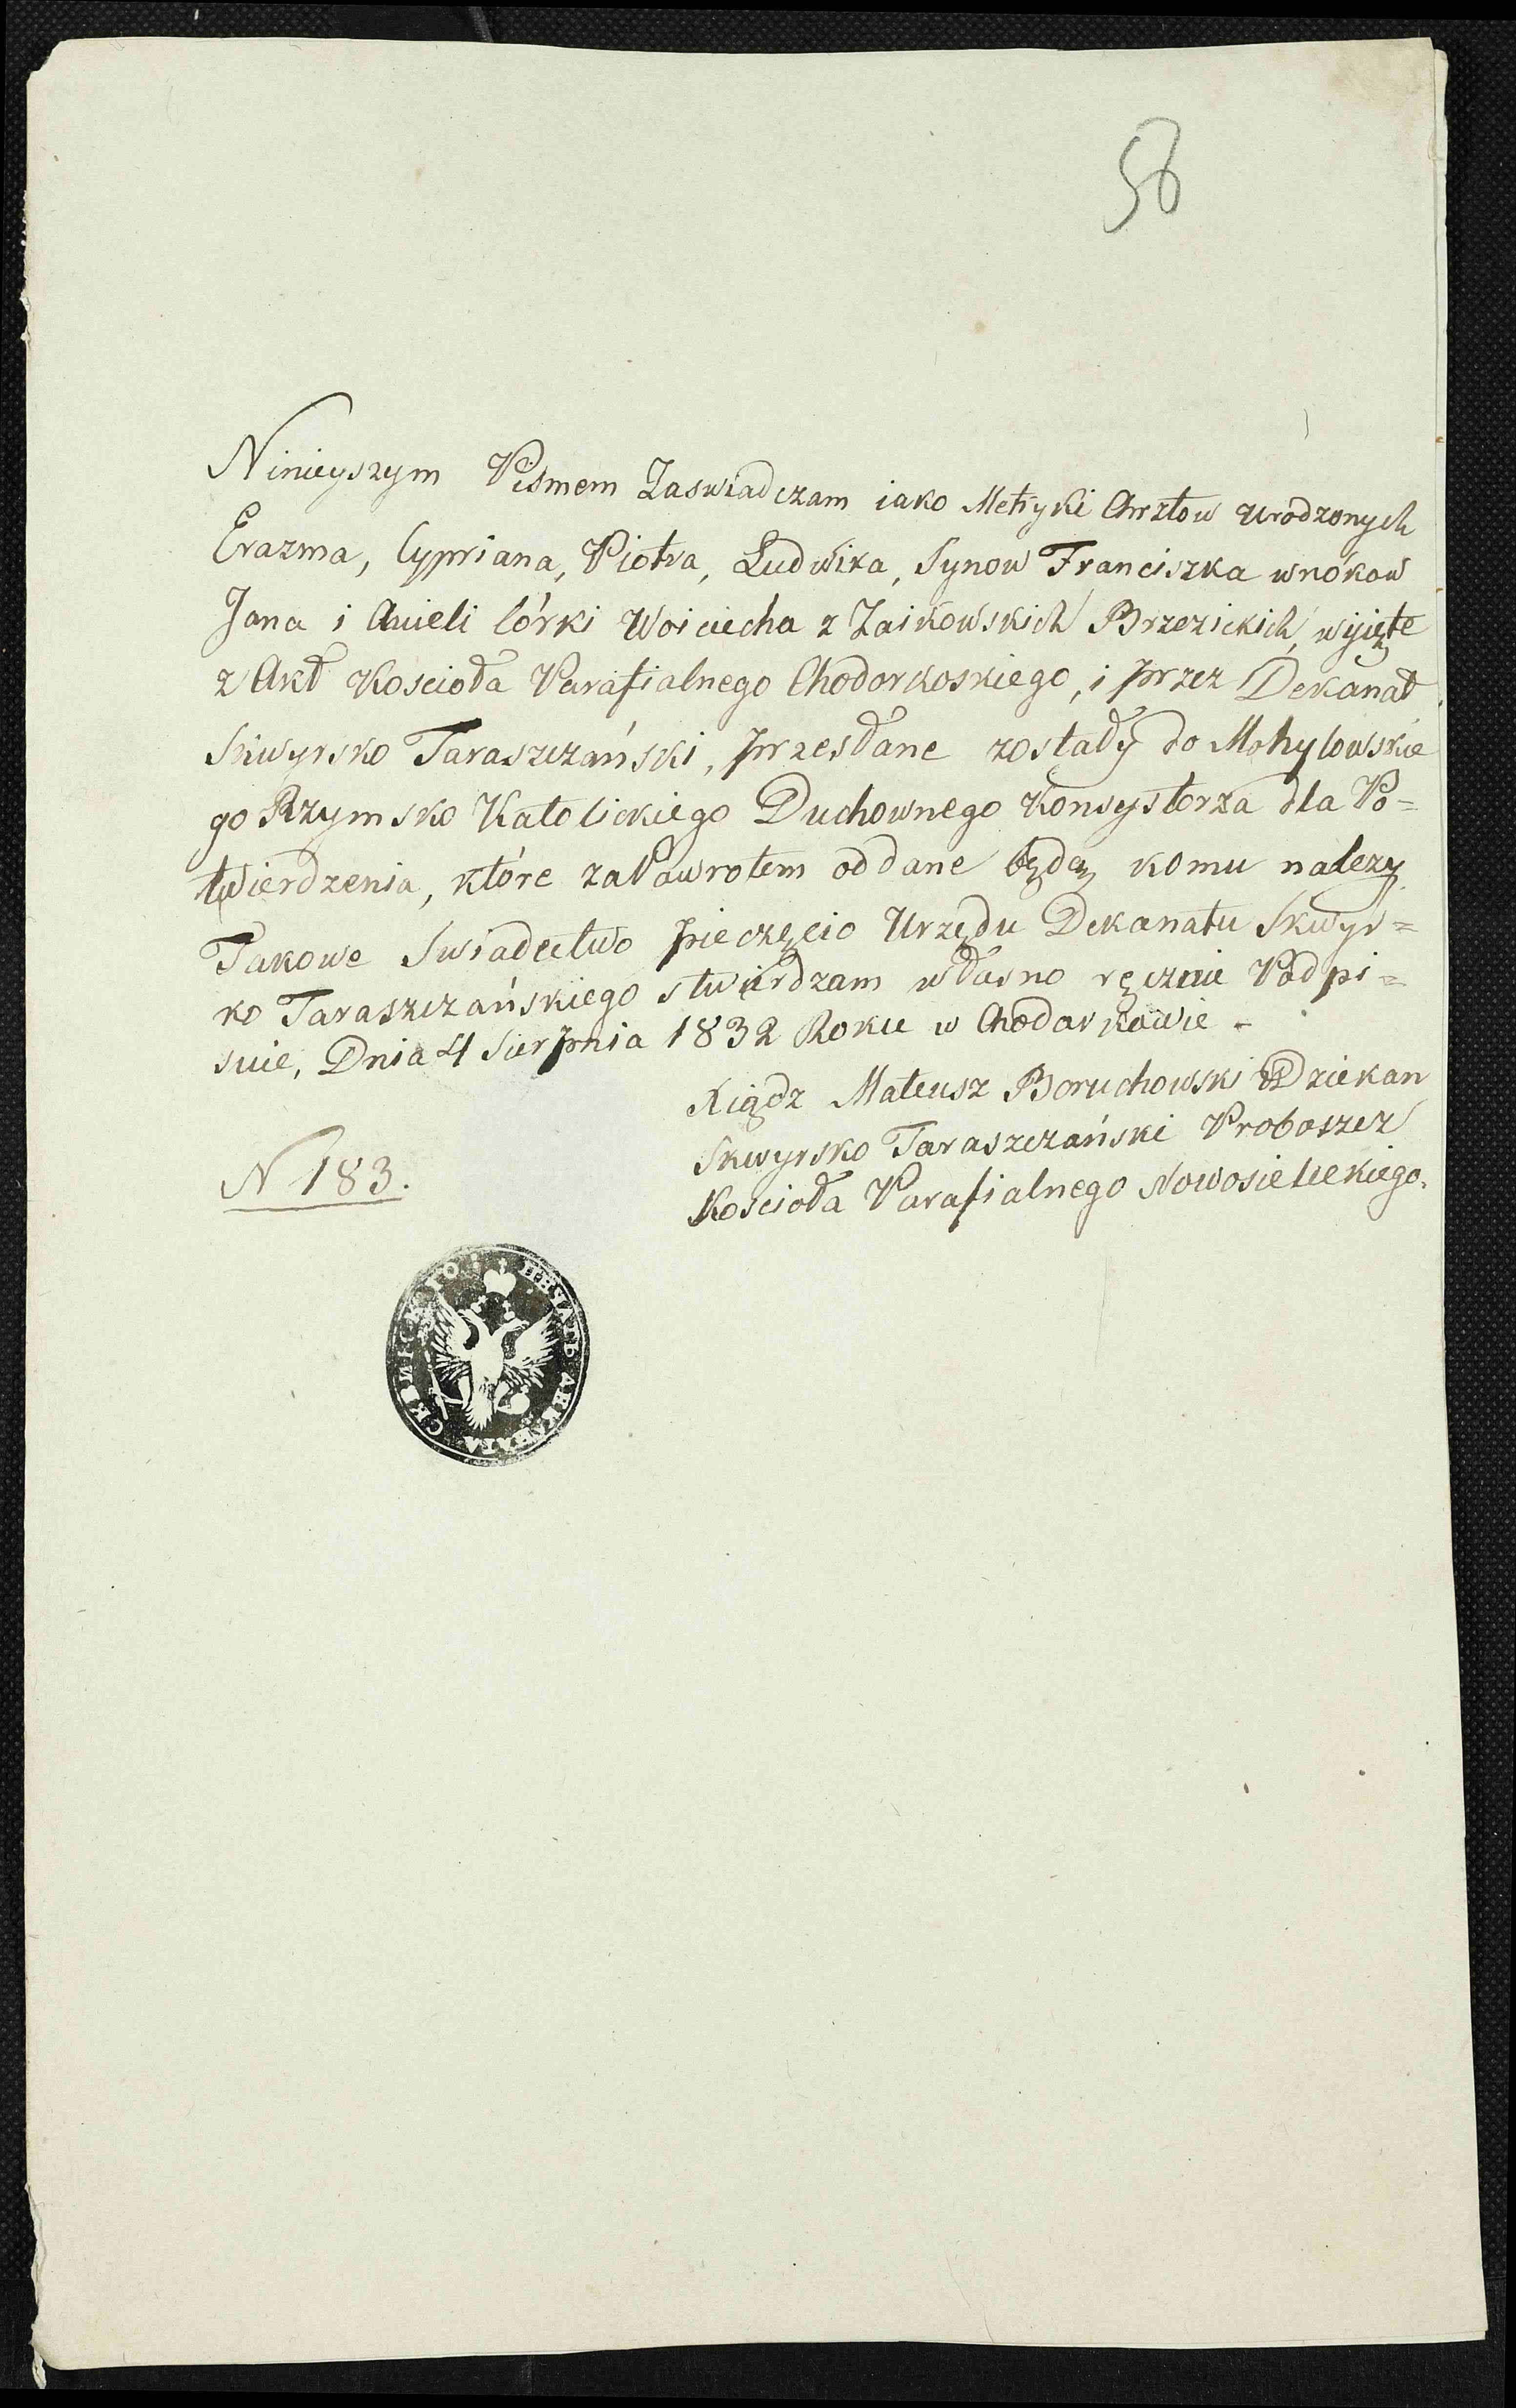 58
Ninieyszym Pismem Zaswiadczam iako Metryki Chrztow urodzonych
Erazma, Cypriana, Piotra, Ludwika, Synow Franciszka wnókow
Jana i Anieli Córki Woiciecha z Zaikowskich Brzezickich, wyięte
z Akt Koscioła Parafialnego Chodorkoskiego, i przez Dekanat
Skwyrsko Taraszczański, przesłane zostały do Mohylowskie
go Rzymsko Katolickiego Duchownego Konsystorza dla Po=
twierdzenia, które zaPowrotem oddane będą komu nalezy
Takowe Swiadectwo pieczęcio Urzędu Dekanatu Skwyr=
ko Taraszczańskiego stwierdzam własno ręcznie Podpi=
suie, Dnia 4 Sierpnia 1832 Roku w Chodorkowie.
Xiądz Mateusz Boruchowski Dziekan
Skwyrsko Taraszczański Proboszcz
Koscioła Parafialnego Nowosieleckiego.
N 183.
ПЕЧАТЬ ДЕКАНАТА СКВИРСКАГО